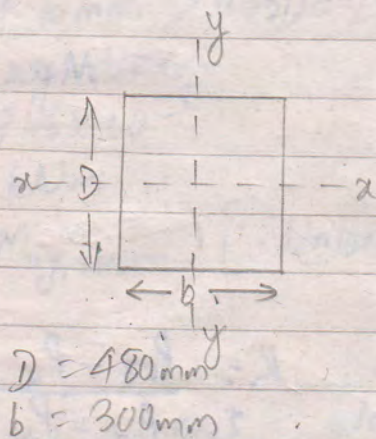 y
x D x
b
y
D = 480mm
b = 300mm